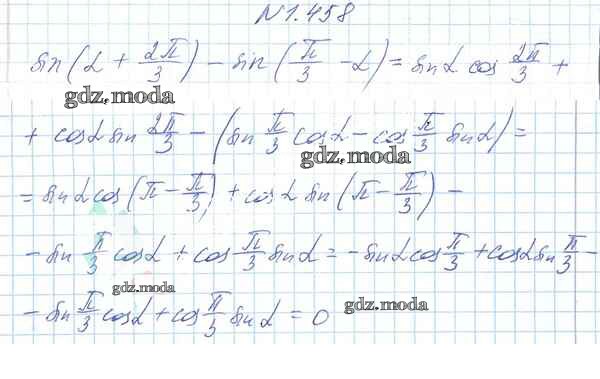 N 1.458
sin(α + 2π/3) - sin(π/3 - α) = sinα cos 2π/3 +
gdz.moda
+ cosα sin 2π/3 - (sin π/3 cosα - cos π/3 sinα) =
gdz.moda
= sinα cos(π - π/3) + cosα sin(π - π/3) -
- sin π/3 cosα + cos π/3 sinα = - sinα cos π/3 + cosα sin π/3 -
gdz.moda
gdz.moda
- sin π/3 cosα + cos π/3 sinα = 0